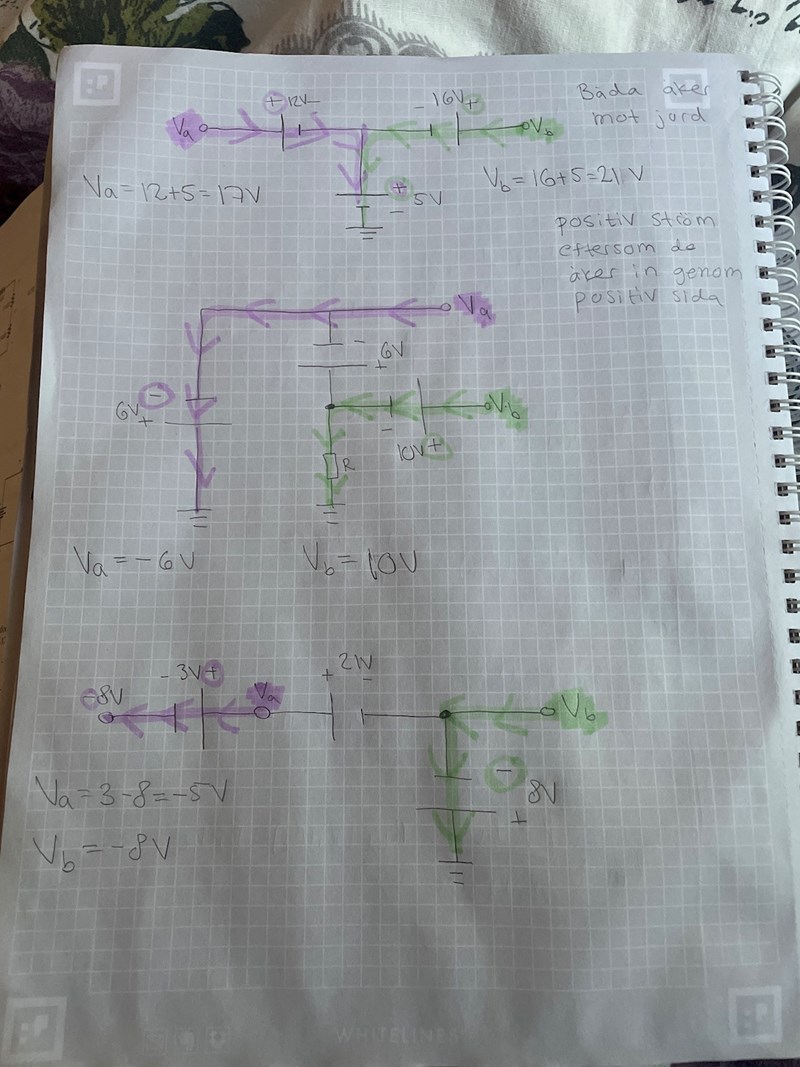 Båda åker
mot jord
Va + 12V - - 16V + Vb
+ 5V
-
Va = 12 + 5 = 17V
Vb = 16 + 5 = 21 V
positiv ström
eftersom de
åker in genom
positiv sida
Va
- 6V
+
- 6V
+
Vb
- 10V +
R
Va = -6V
Vb = 10V
-8V - 3V + Va + 21V - Vb
- 8V
+
Va = 3 - 8 = -5V
Vb = -8V
WHITELINES